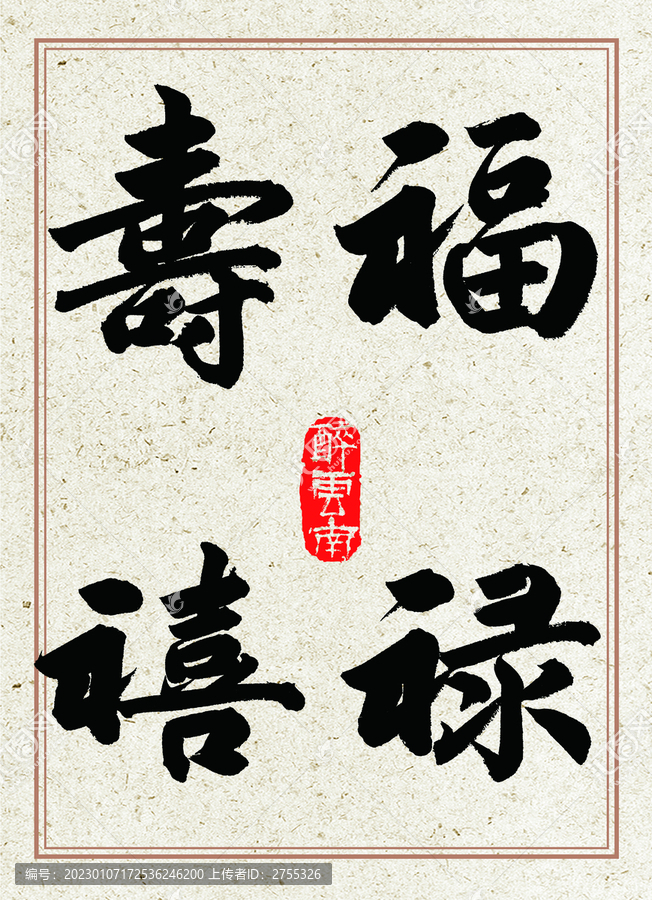 福
禄
壽
禧
醉雲南
编号：20230107172536246200 上传者ID：2755326